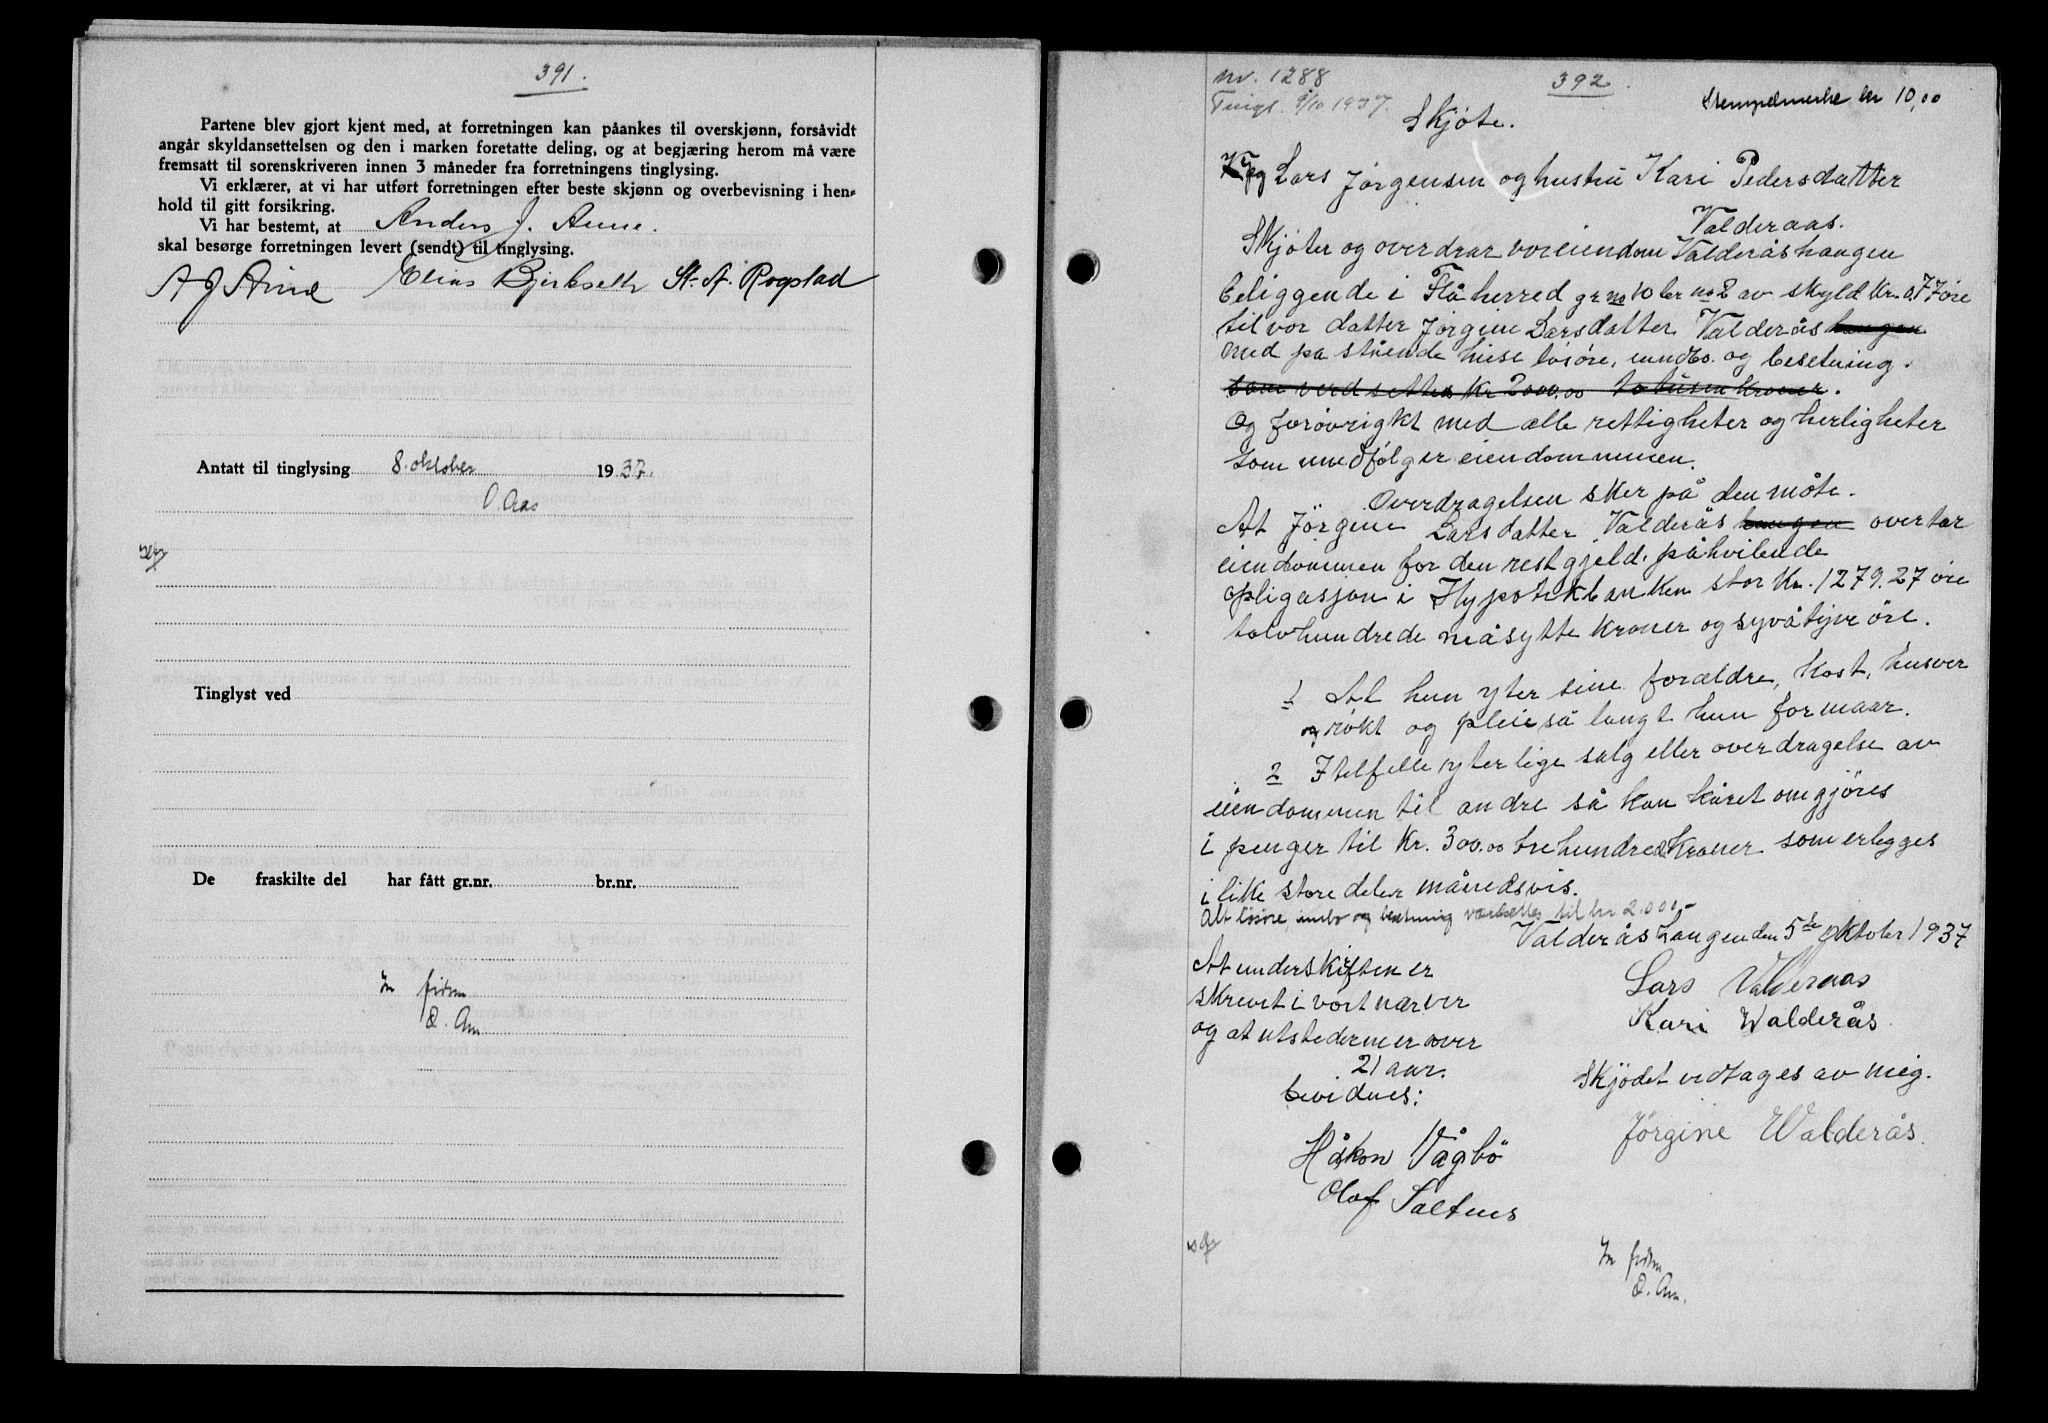 391.
Partene blev gjort kjent med, at forretningen kan påankes til overskjønn, forsåvidt
angår skyldansettelsen og den i marken foretatte deling, og at begjæring herom må være
fremsatt til sorenskriveren innen 3 måneder fra forretningens tinglysing.
Vi erklærer, at vi har utført forretningen efter beste skjønn og overbevisning i hen-
hold til gitt forsikring.
Vi har bestemt, at Anders J. Aune.
skal besørge forretningen levert (sendt) til tinglysing.
A J Aune Elias Bjerkseth St. A. Rogstad
Antatt til tinglysing 8. oktober 1937.
O. Aas
Tinglyst ved
De fraskilte del har fått gr.nr. br.nr.
nr. 1288
Tingl. 8/10 1937.
392.
Stempelmerke kr 10,00
Skjøte.
Jeg Lars Jørgensen og hustru Kari Pedersdatter
Valderaas.
Skjøter og overdrar vor eiendom Valderåshaugen
beliggende i Flå herred gr no 10 br no 2 av skyld Kr. 0,77 öre
til vor datter Jørgine Larsdatter Valderås haugen
med på stående huse løsøre, innbo. og besetning.
som verdsettes Kr 2000.00 totusen kroner.
Og forøvrigkt med alle rettigheter og herligheter
som medfølger eiendommen.
Overdragelsen sker på den måte.
At Jörgine Larsdatter Valderås haugen overtar
eiendommen for den restgjeld. påhvilende
opligasjon i Hypotekbanken stor Kr. 1279.27 öre
tolvhundrede niåsytte kroner og syvåtjve öre.
1 At hun yter sine forældre, kost, husver
og røkt og pleie så langt hun formaar.
2 I telfelle yterlige salg eller overdragelse av
eiendommen til andre så kan kåret omgjøres
i penger til Kr. 300.00 trehundrede Kroner som erlegges
i like store deler månedsvis.
Alt lösöre, innbo og besetning verdsettes til kr 2.000,-
Valderåshaugen den 5te oktober 1937
At underskriften er
skrevet i vort nærver
og at utstederne er over
21 aar.
bevidnes:
Håkon Vågbö
Olaf Saltnes
Lars Valderaas
Kari Walderås
Skjödet vedtages av mig.
Jörgine Walderås.